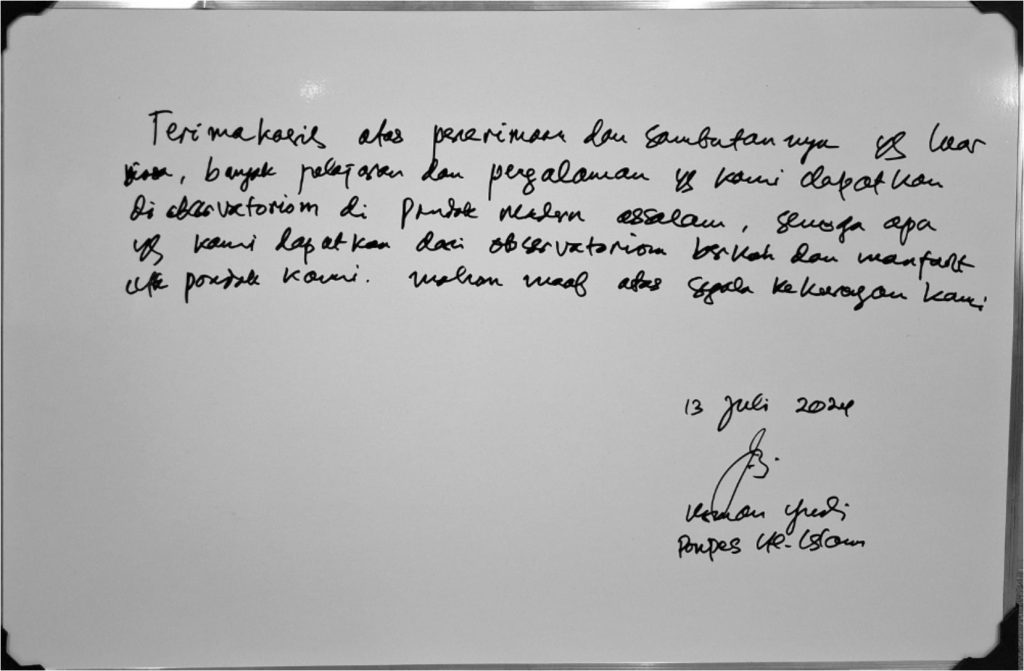 Terimakasih atas penerimaan dan sambutannya yg luar
biasa, banyak pelajaran dan pengalaman yg kami dapatkan
di observatoriom di Pondok modern assalam, semoga apa
yg kami dapatkan dari observatoriom berkah dan manfaat
utk pondok kami. mohon maaf atas segala kekurangan kami
13 Juli 2024
Yudi
Ponpes